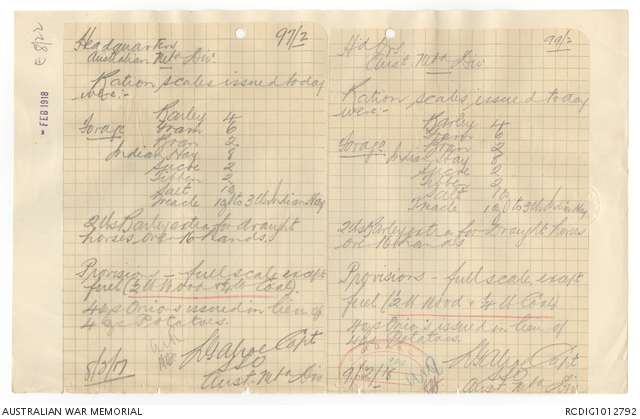 E 8/22
- FEB 1918
97/2
Headquarters
Australian Mtd Div.
Ration scales issued today
were:-
Barley 4
Forage Gram 6
Bran 2
Indian Hay 8
2
Tibben 2
Salt
Treacle to 3 lbs Indian Hay
2 lbs Barley extra for draught
horses over 16 hands.
Provisions - full scale except
fuel (½ lb Wood + ¼ lb Coal)
4 ozs Onions issued in lieu of
4 ozs Potatoes.
Capt
Aust. Mtd Div
99/2
Hd Qrs
Aust. Mtd Div
Ration scales issued today
were:-
Barley 4
Gram 6
Forage Bran 2
Indian Hay 8
2
Tibben 2
Salt
Treacle to 3 lbs Indian Hay
2 lbs Barley extra for draught horses
over 16 hands
Provisions - full scale except
fuel (½ lb Wood + ¼ lb Coal)
4 ozs Onions issued in lieu of
4 ozs Potatoes.
Capt
9/2/18
Aust Mtd Div
AUSTRALIAN WAR MEMORIAL
RCDIG1012792